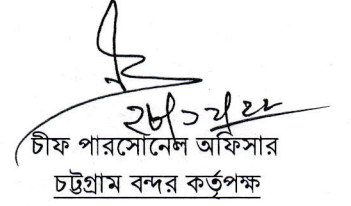 চীফ পারসোনেল অফিসার
চট্টগ্রাম বন্দর কর্তৃপক্ষ